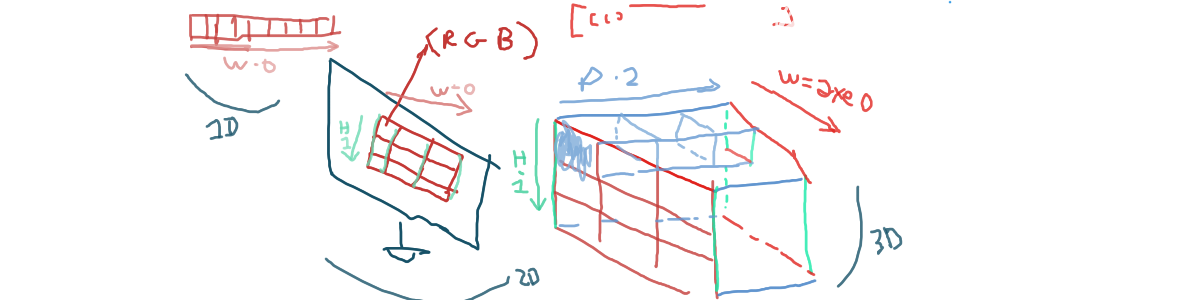 [[[]
W·0
1D
(RGB)
W-0
H
1
2D
D·2
W=axe 0
H·1
3D